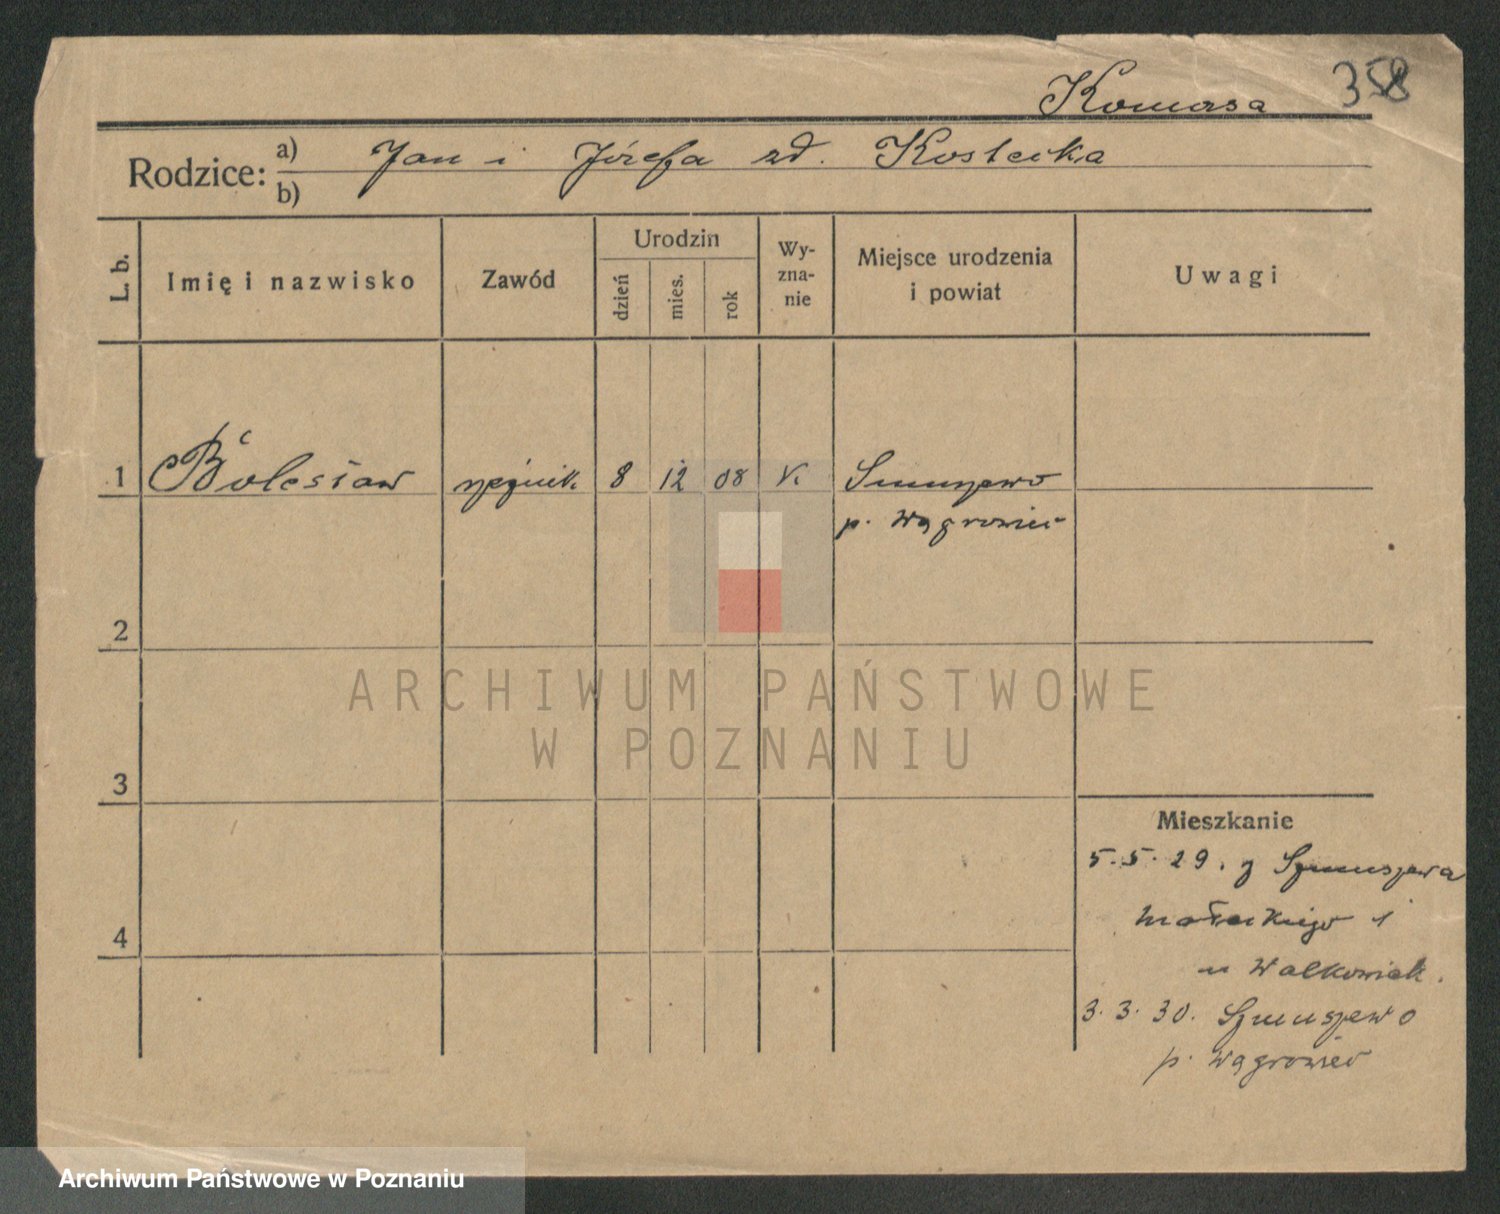 Komasa 358
Rodzice: a) Jan i Józefa zd. Kostecka
b)
L. b. Imię i nazwisko Zawód Urodzin dzień mies. rok Wy-zna-nie Miejsce urodzenia i powiat Uwagi
1 Bolesław rzeźnik 8 12 08 K.
p. Wągrowiec
2
ARCHIWUM PAŃSTWOWE
W POZNANIU
3
Mieszkanie
5.5.29. z
Małeckiego 1
4
u Walkowiak.
3.3.30.
p. Wągrowiec
Archiwum Państwowe w Poznaniu